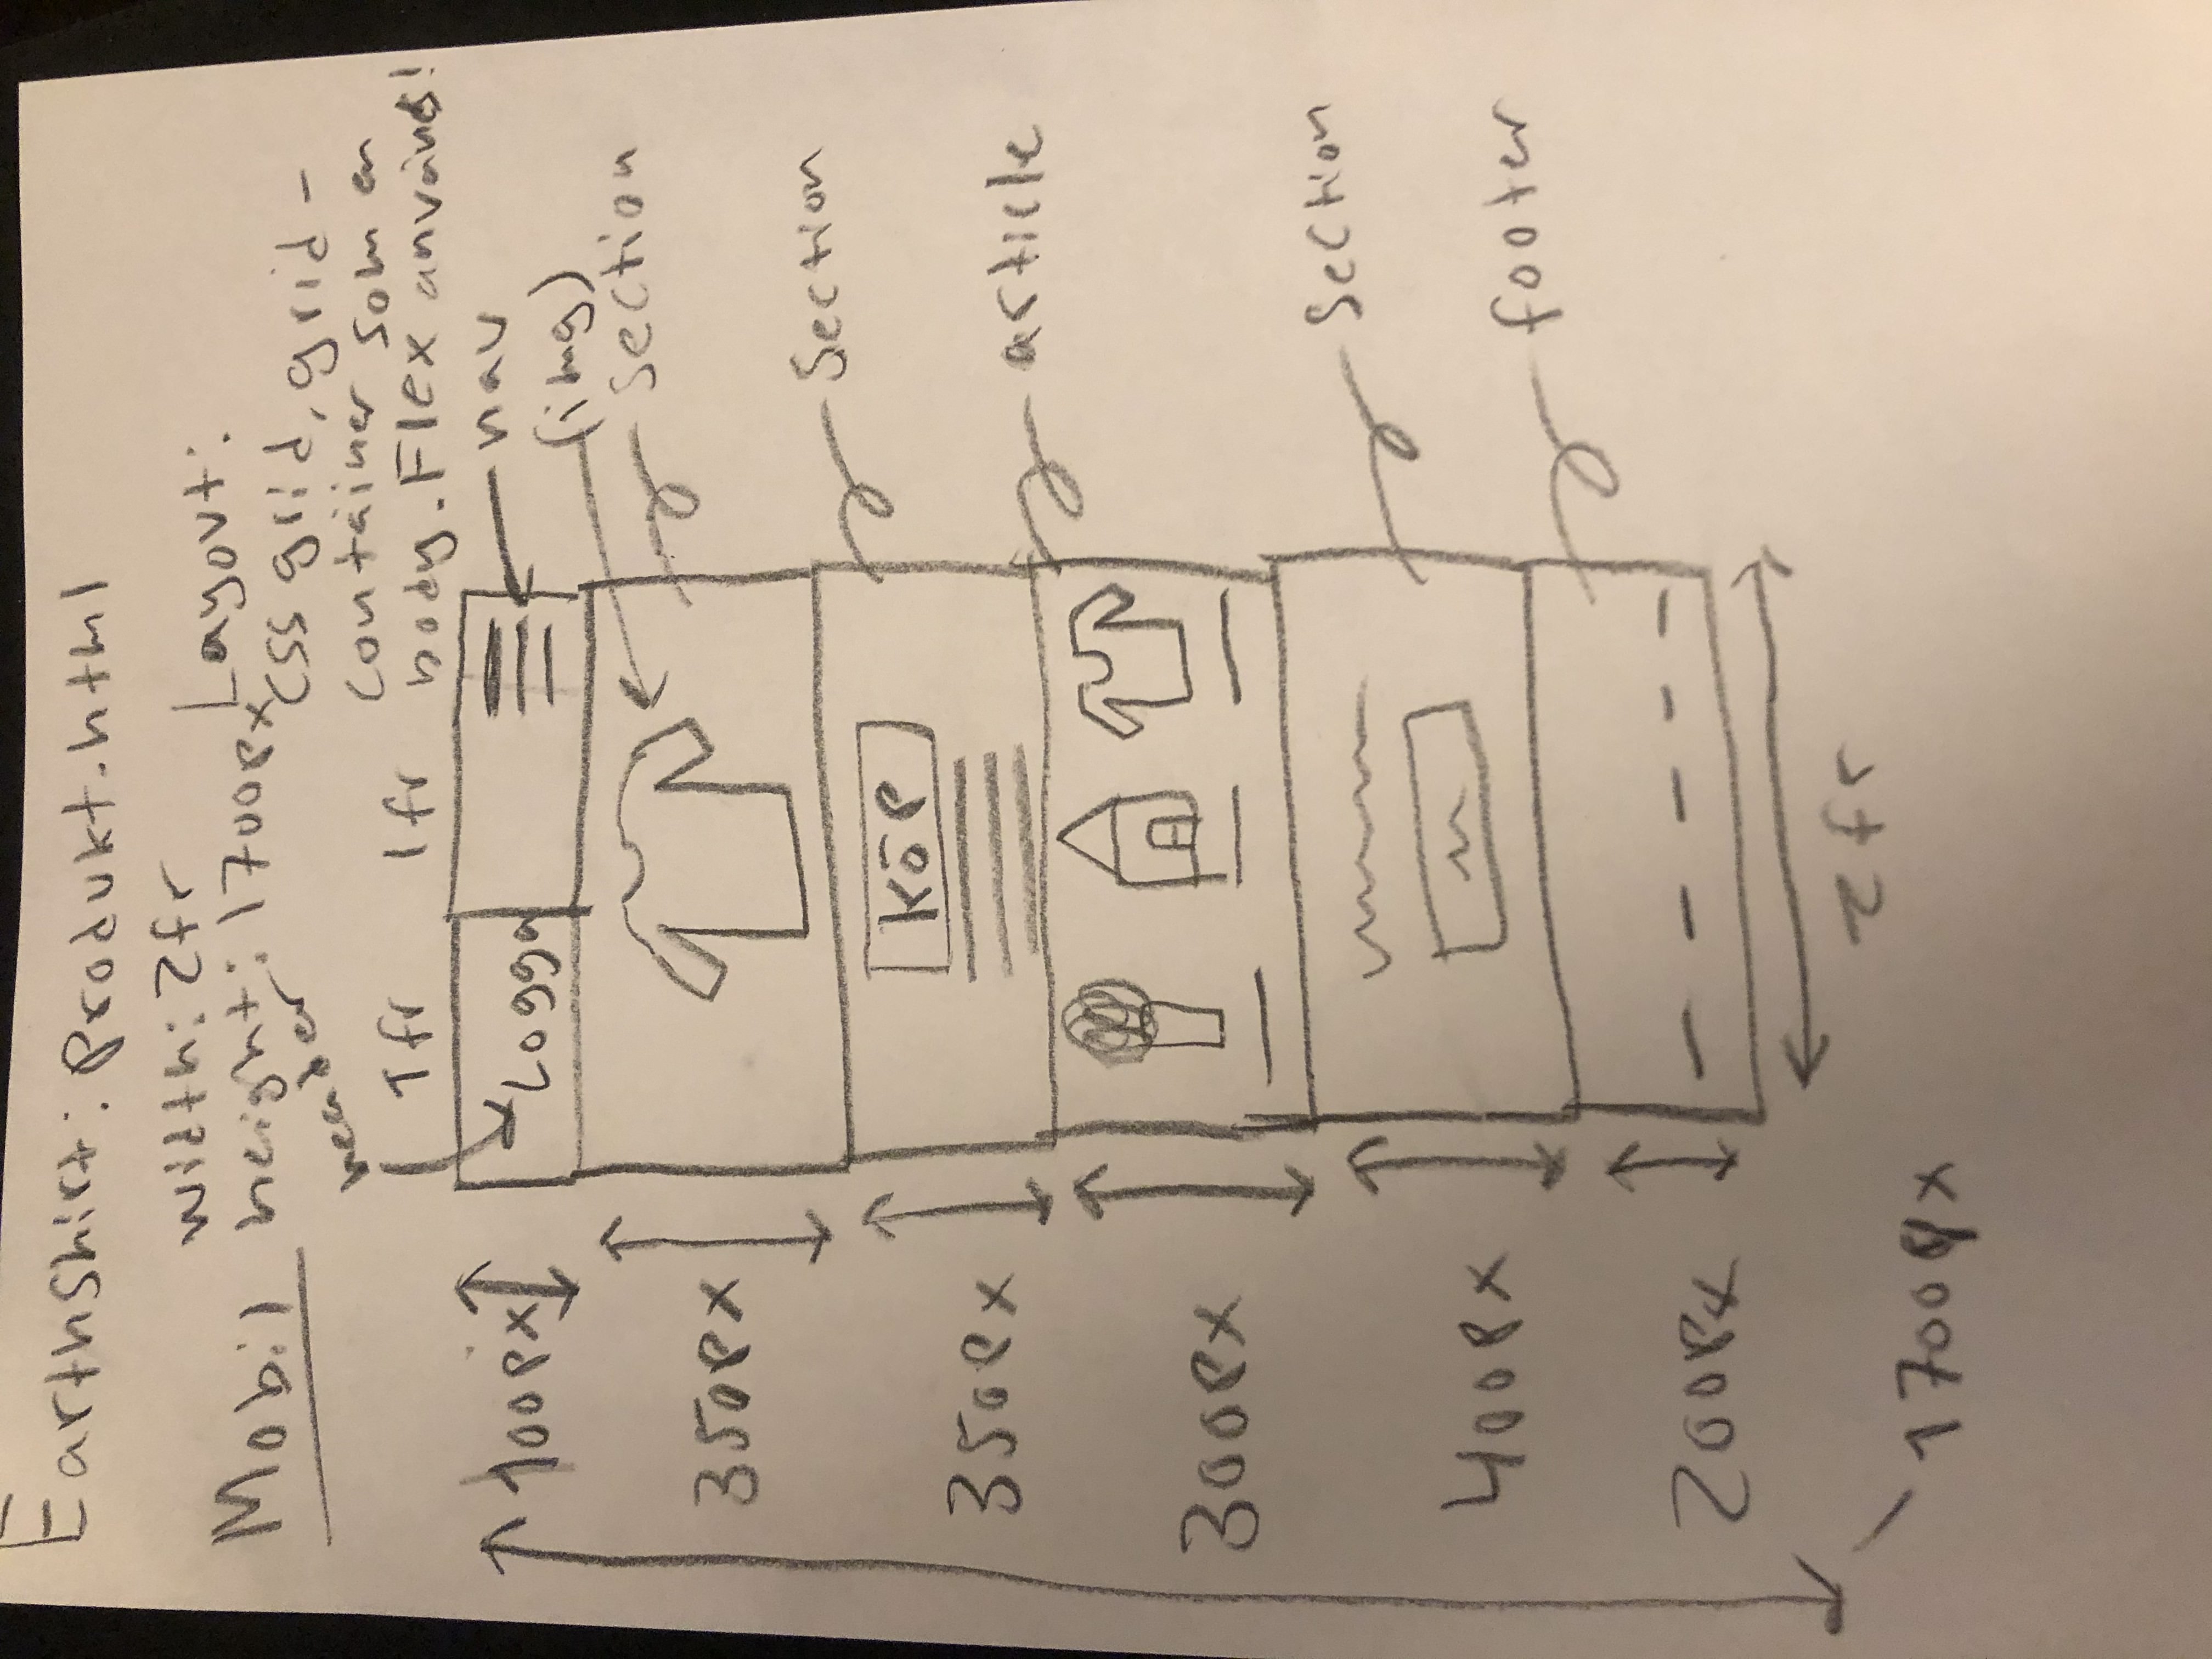 EarthShirt: Produkt.html
Mobil
width: 2fr
height: 1700px
Layout:
css grid, grid-
container som en
body. Flex används!
header
1fr 1fr
100px
Logga
nav
(img)
section
350px
Section
KÖP
350px
article
300px
Section
400px
footer
200px
2fr
1700px